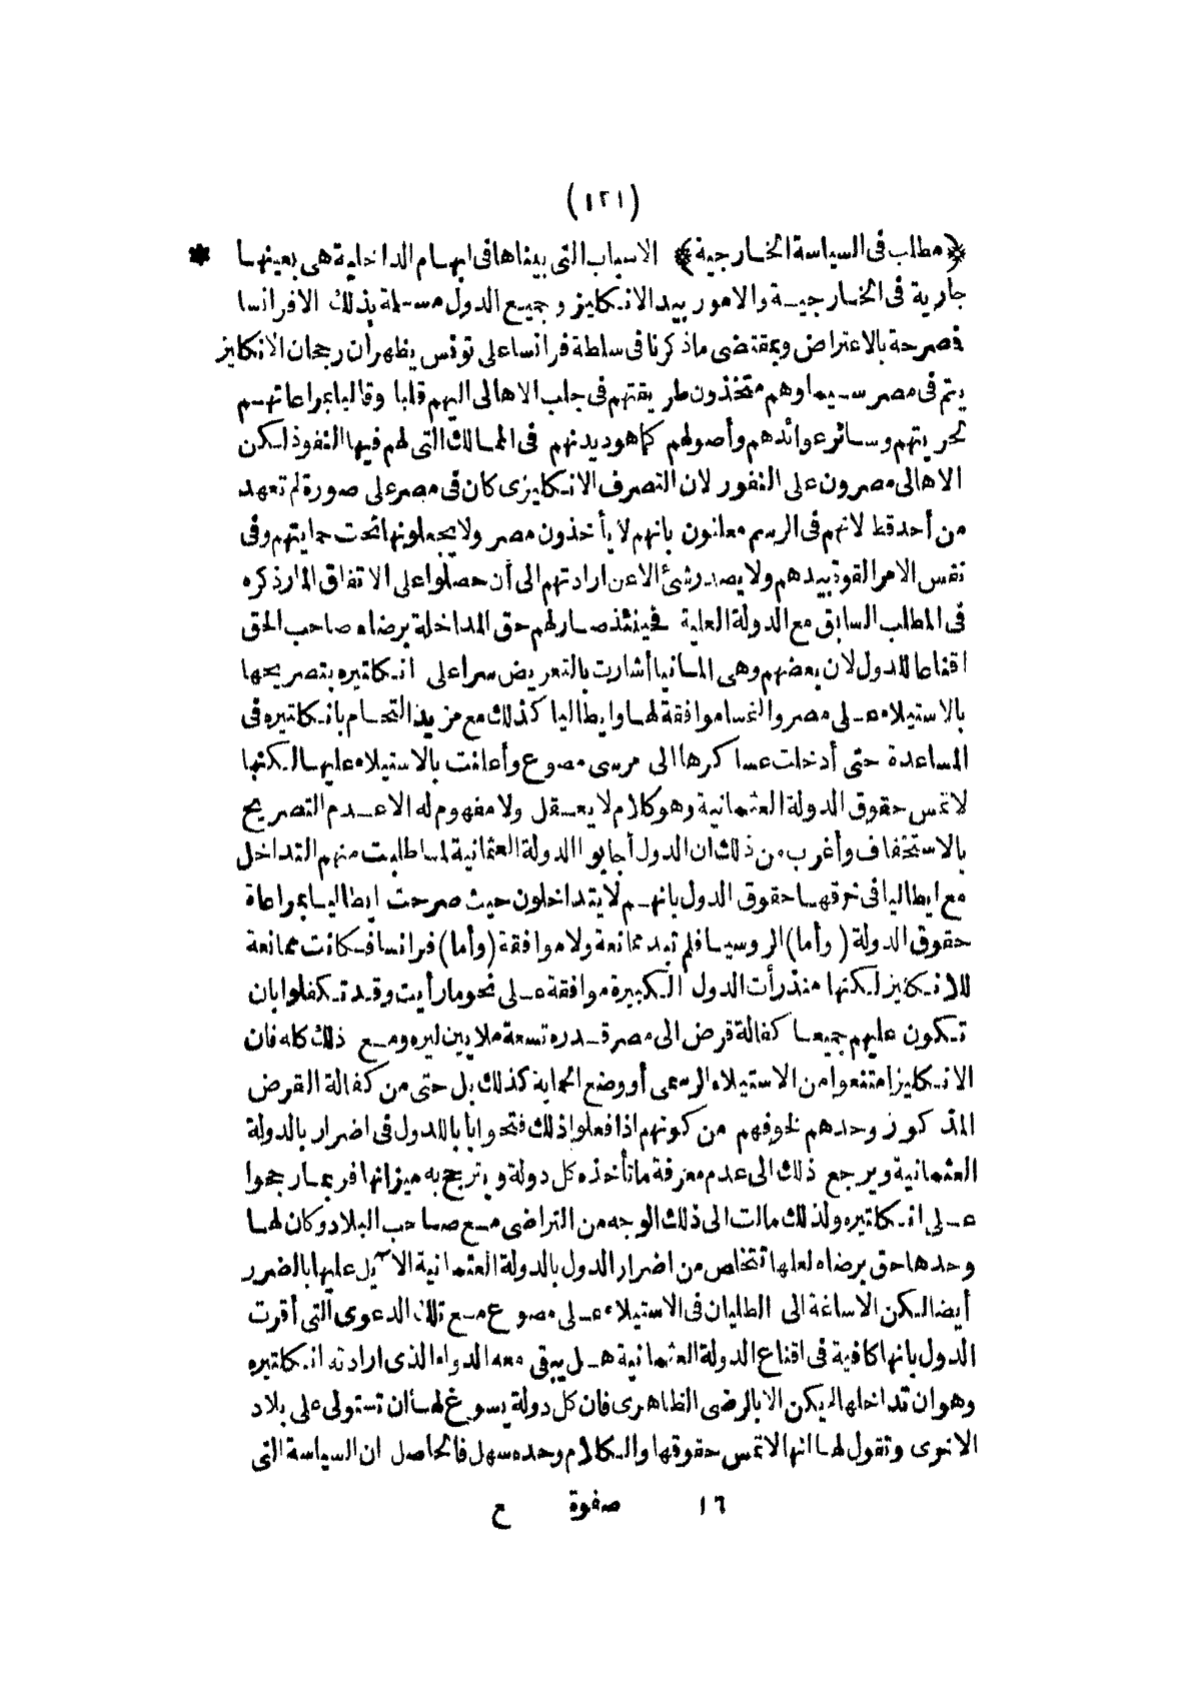 (١٢١)
﴿مطلب فى السياسة الخارجية﴾ الاسباب التى بيناها فى ابهام الداخلية هى بعينها *
جارية فى الخارجية والامور بيد الانكليز وجميع الدول مسلمة بذلك الا فرانسا
فصرحة بالاعتراض وبمقتضى ماذكرنا فى سلطة فرانسا على تونس يظهر أن رجحان الانكليز
يتم فى مصر سيما وهم متخذون طريقتهم فى جلب الاهالى اليهم قلبا وقالبا بمراعاتهم
لحريتهم وسائر عوائدهم وأصولهم كما هو ديدنهم فى الممالك التى لهم فيها النفوذ لكن
الاهالى مصرون على النفور لان التصرف الانكليزى كان فى مصر على صورة لم تعهد
من أحد قط لانهم فى الرسم معلنون بانهم لا يأخذون مصر ولا يجعلونها تحت حمايتهم وفى
نفس الامر القوة بيدهم ولا يصدر شئ الا عن ارادتهم الى أن حصلوا على الاتفاق المار ذكره
فى المطلب السابق مع الدولة العلية فحينئذ صار لهم حق المداخلة برضاء صاحب الحق
اقناعا للدول لان بعضهم وهى المانيا أشارت بالتعريض سرا على انكلتيره بتصريحها
بالاستيلاء على مصر والنمسا موافقة لها وايطاليا كذلك مع مزيد التحام بانكلتيره فى
المساعدة حتى أدخلت عساكرها الى مرسى مصوع وأعلنت بالاستيلاء عليها لكنها
لا تمس حقوق الدولة العثمانية وهو كلام لا يعقل ولا مفهوم له الا عدم التصريح
بالاستخفاف وأغرب من ذلك ان الدول أجابوا الدولة العثمانية لما طلبت منهم التداخل
مع ايطاليا فى خرقها حقوق الدول بانهم لا يتداخلون حيث صرحت ايطاليا بمراعاة
حقوق الدولة (وأما) الروسيا فلم تبد ممانعة ولا موافقة (وأما) فرانسا فكانت ممانعة
للانكليز لكنها منذ رأت الدول الكبيرة موافقة على نحو ما رأيت وقد تكفلوا بان
تكون عليهم جميعا كفالة قرض الى مصر قدره تسعة ملايين ليره ومع ذلك كله فان
الانكليز امتنعوا من الاستيلاء الرسمى أو وضع الحماية كذلك بل حتى من كفالة القرض
المذكور وحدهم لخوفهم من كونهم اذا فعلوا ذلك فتحوا بابا للدول فى اضرار بالدولة
العثمانية ويرجع ذلك الى عدم معرفة ما تأخذه كل دولة ويترجح به ميزانها فربما رجحوا
على انكلتيره ولذلك مالت الى ذلك الوجه من التراضى مع صاحب البلاد وكان لها
وحدها حق برضاه لعلها تتخلص من اضرار الدول بالدولة العثمانية الآيل عليها بالضرر
أيضا لكن الاساغة الى الطليان فى الاستيلاء على مصوع مع تلك الدعوى التى أقرت
الدول بانها كافية فى اقناع الدولة العثمانية هل يبقى معه الدواء الذى ارادته انكلتيره
وهو ان تداخلها لم يكن الا بالرضى الظاهرى فان كل دولة يسوغ لها أن تستولى على بلاد
الاخرى وتقول لها انها لا تمس حقوقها والكلام وحده سهل فالحاصل ان السياسة التى
١٦ صفوة ع